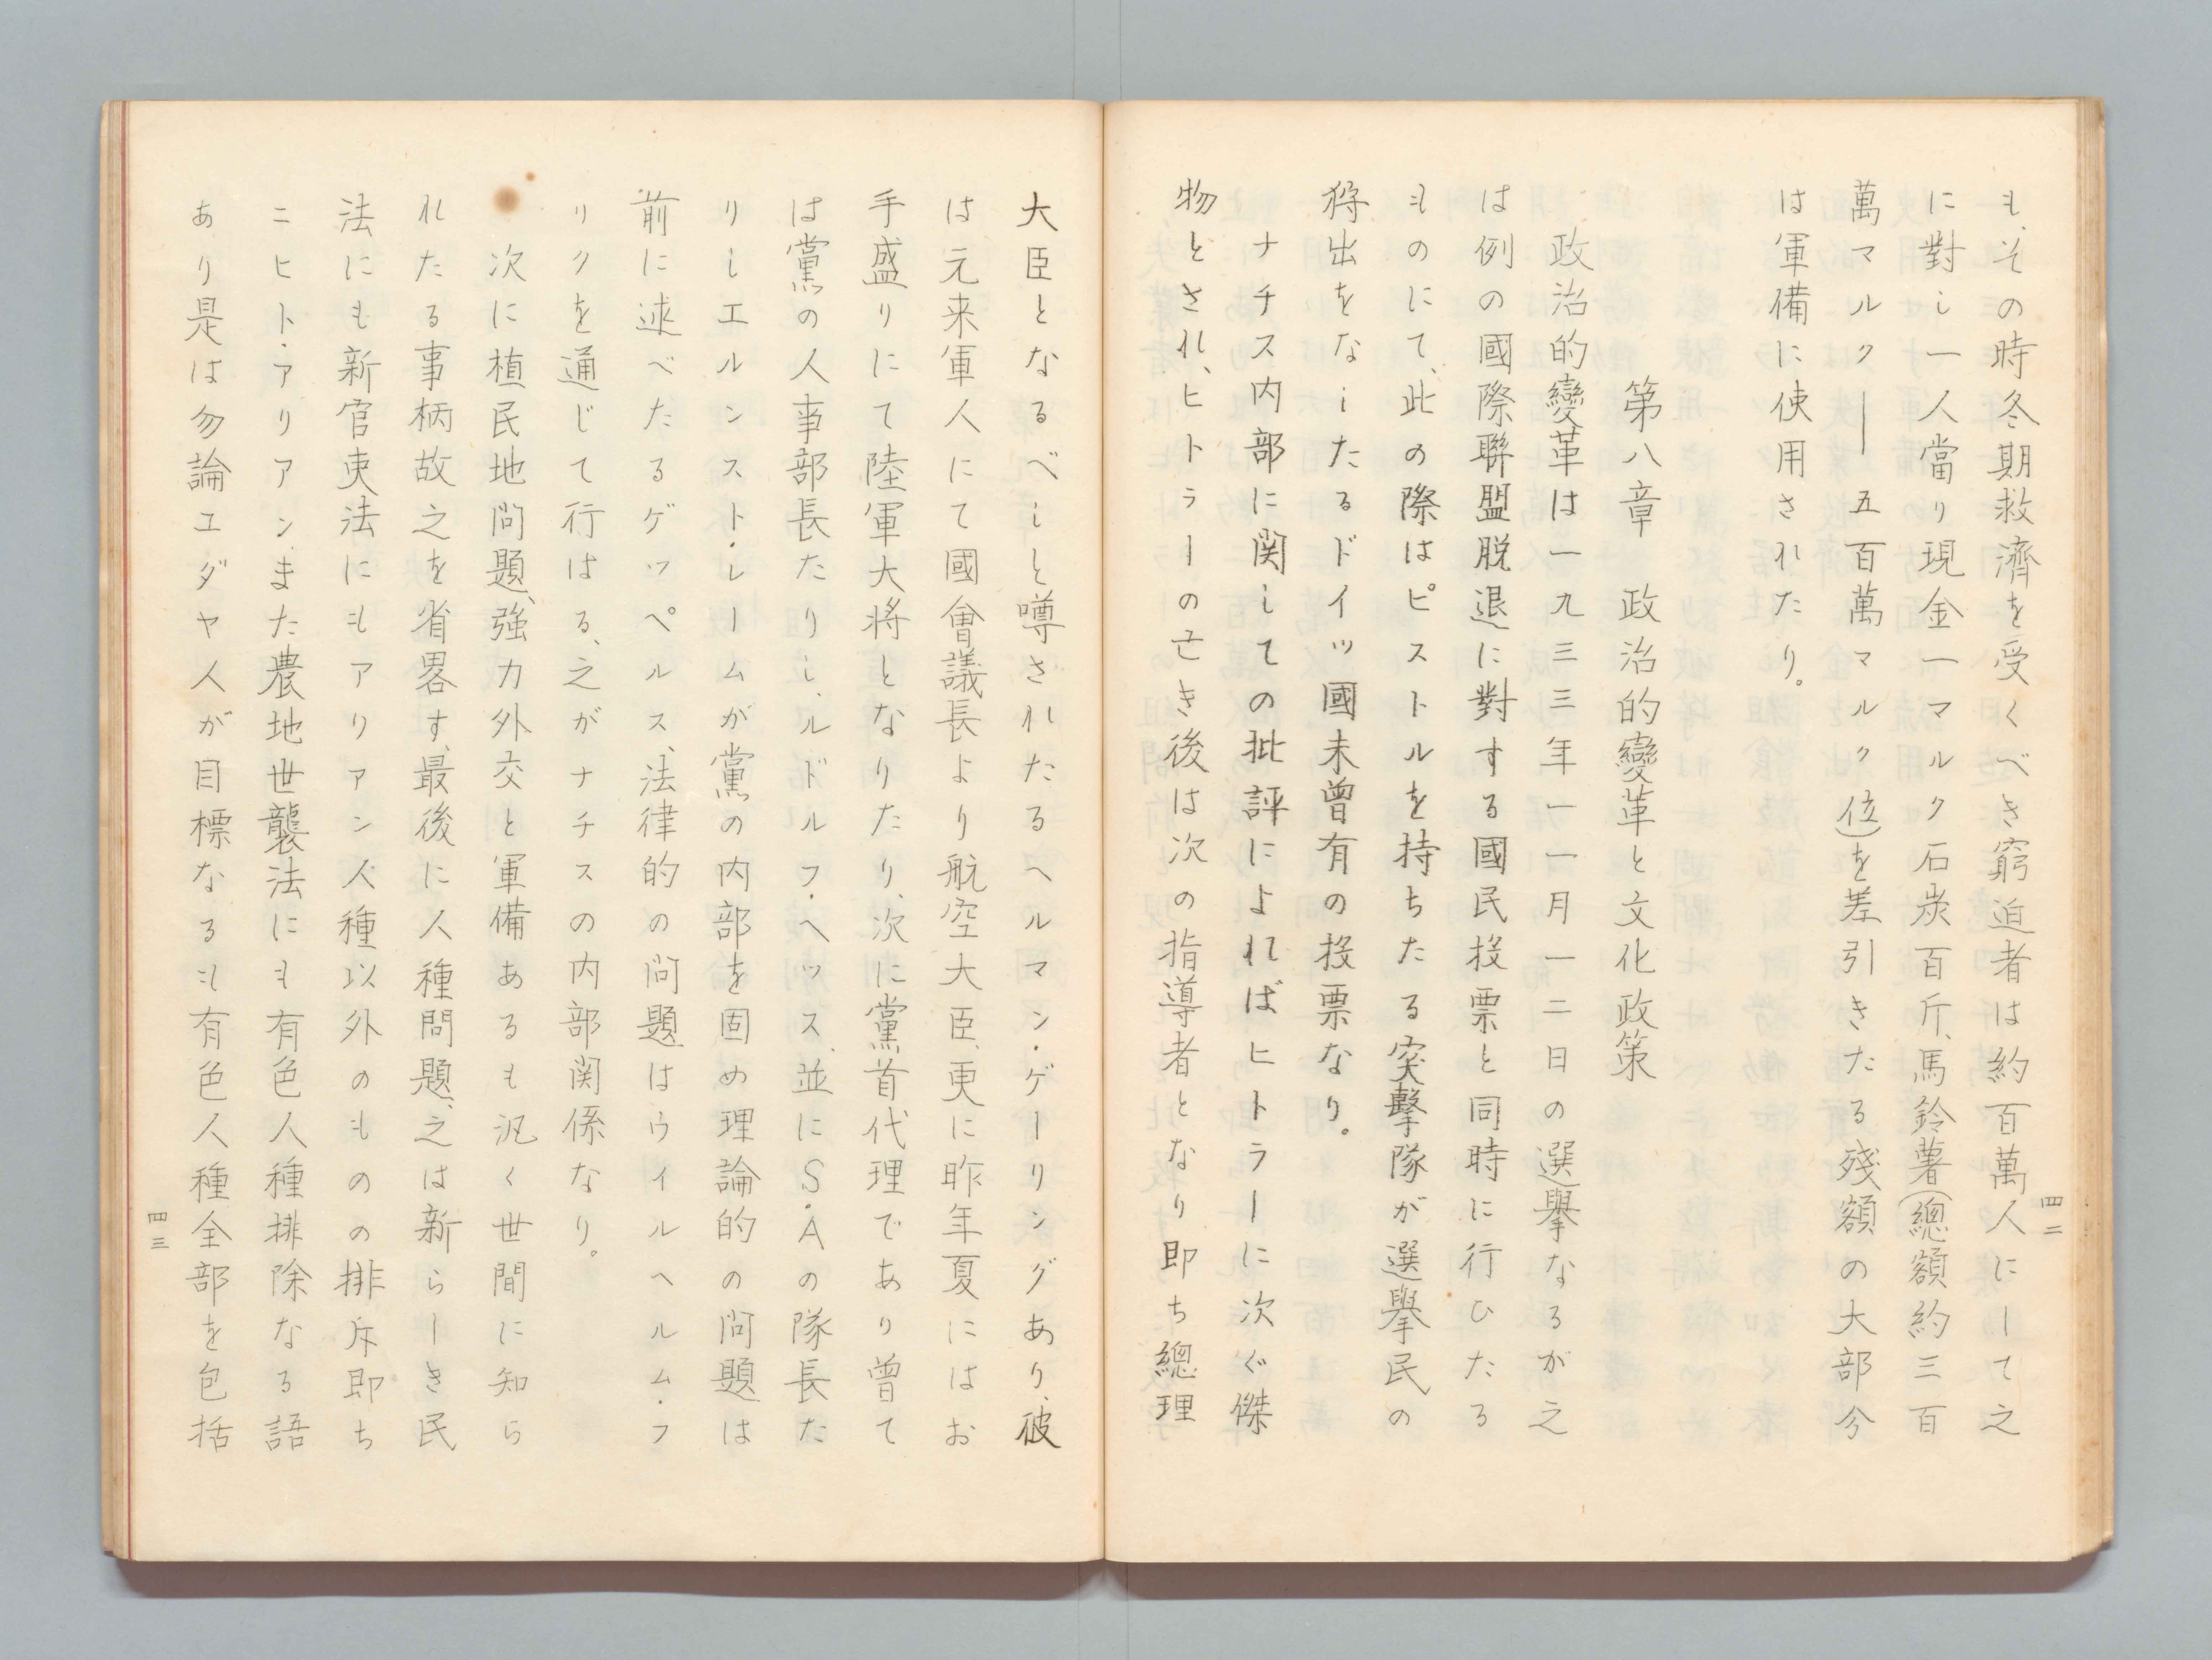 も、その時冬期救濟を受くべき窮迫者は約百萬人にして之
に對し一人當り現金一マルク石炭百斤、馬鈴薯(總額約三百
萬マルク――五百萬マルク位)を差引きたる殘額の大部分
は軍備に使用されたり。
第八章　政治的變革と文化政策
政治的變革は一九三三年一一月一二日の選擧なるが之
は例の國際聯盟脱退に對する國民投票と同時に行ひたる
ものにて、此の際はピストルを持ちたる突擊隊が選擧民の
狩出をなしたるドイツ國未曾有の投票なり。
ナチス内部に関しての批評によればヒトラーに次ぐ傑
物とされ、ヒトラーの亡き後は次の指導者となり即ち總理
四二
大臣となるべしと噂されたるヘルマン・ゲーリングあり、彼
は元来軍人にて國會議長より航空大臣、更に昨年夏にはお
手盛りにて陸軍大将となりたり、次に黨首代理であり曾て
は黨の人事部長たりし、ルドルフ・ヘッス、並にS・Aの隊長た
りしエルンスト・レームが黨の内部を固め理論的の问題は
前に述べたるゲッペルス、法律的の问題はウイルヘルム・フ
リクを通じて行はる、之がナチスの内部関係なり。
次に植民地问題、強力外交と軍備あるも汎く世間に知ら
れたる事柄故之を省畧す、最後に人種問題、之は新らしき民
法にも新官吏法にもアリアン人種以外のものの排斥即ち
ニヒト・アリアン、また農地世襲法にも有色人種排除なる語
あり是は勿論ユダヤ人が目標なるも有色人種全部を包括
四三